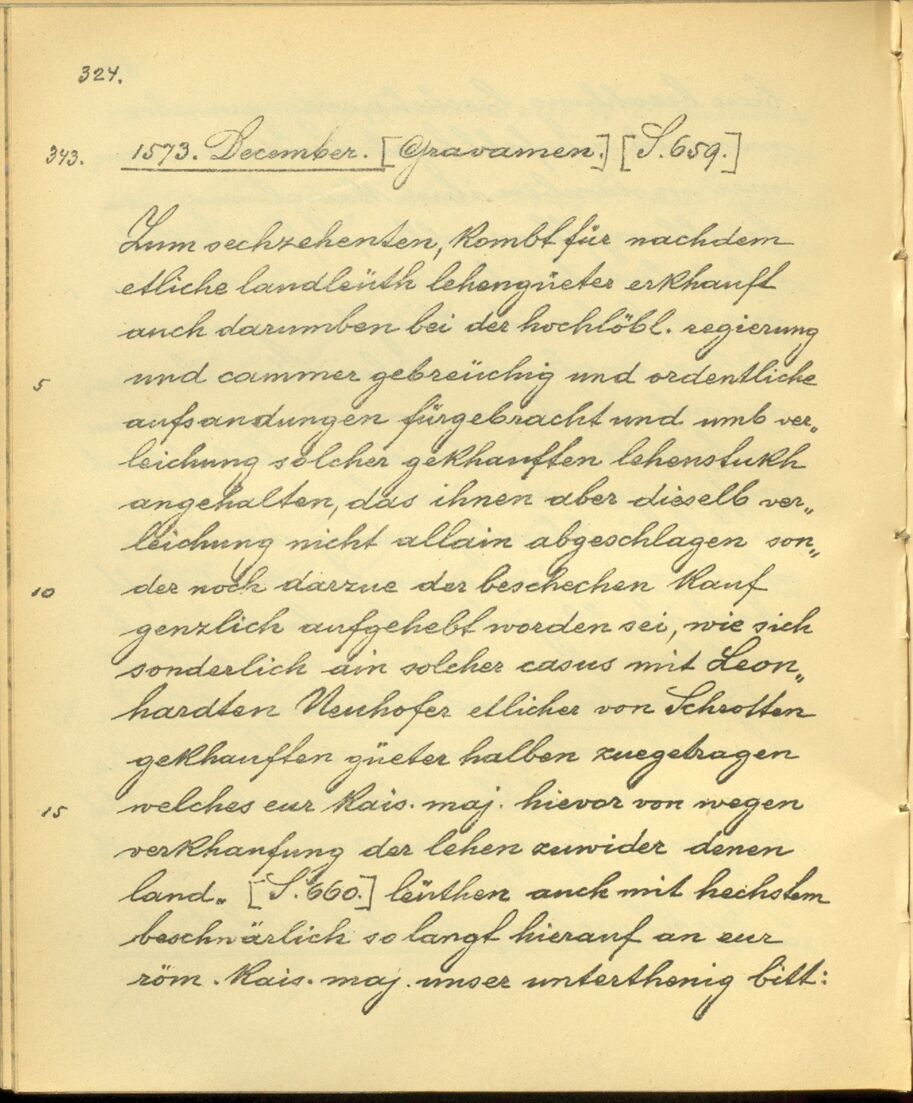 324.
343. 1573. December. [Gravamen.] [S. 659.]
Zum sechzehenten, kombt für nachdem
etliche landleüth lehengüeter erkhauft
auch darumben bei der hochlöbl. regierung
5 und cammer gebreüchig und ordentliche
aufsandungen fürgebracht und umb ver„
leichung solcher gekhauften lehenstukh
angehalten, das ihnen aber dieselb ver„
leichung nicht allain abgeschlagen son„
10 der noch darzue der beschechen kauf
genzlich aufgehebt worden sei, wie sich
sonderlich ain solcher casus mit Leon„
hardten Neuhofer etlicher von Schrotten
gekhauften güeter halben zuegetragen
15 welches eur kais. maj. hievor von wegen
verkhaufung der lehen zuwider denen
land„ [S. 660.] leüthen auch mit hechstem
beschwärlich so langt hierauf an eur
röm. kais. maj. unser unterthenig bitt: